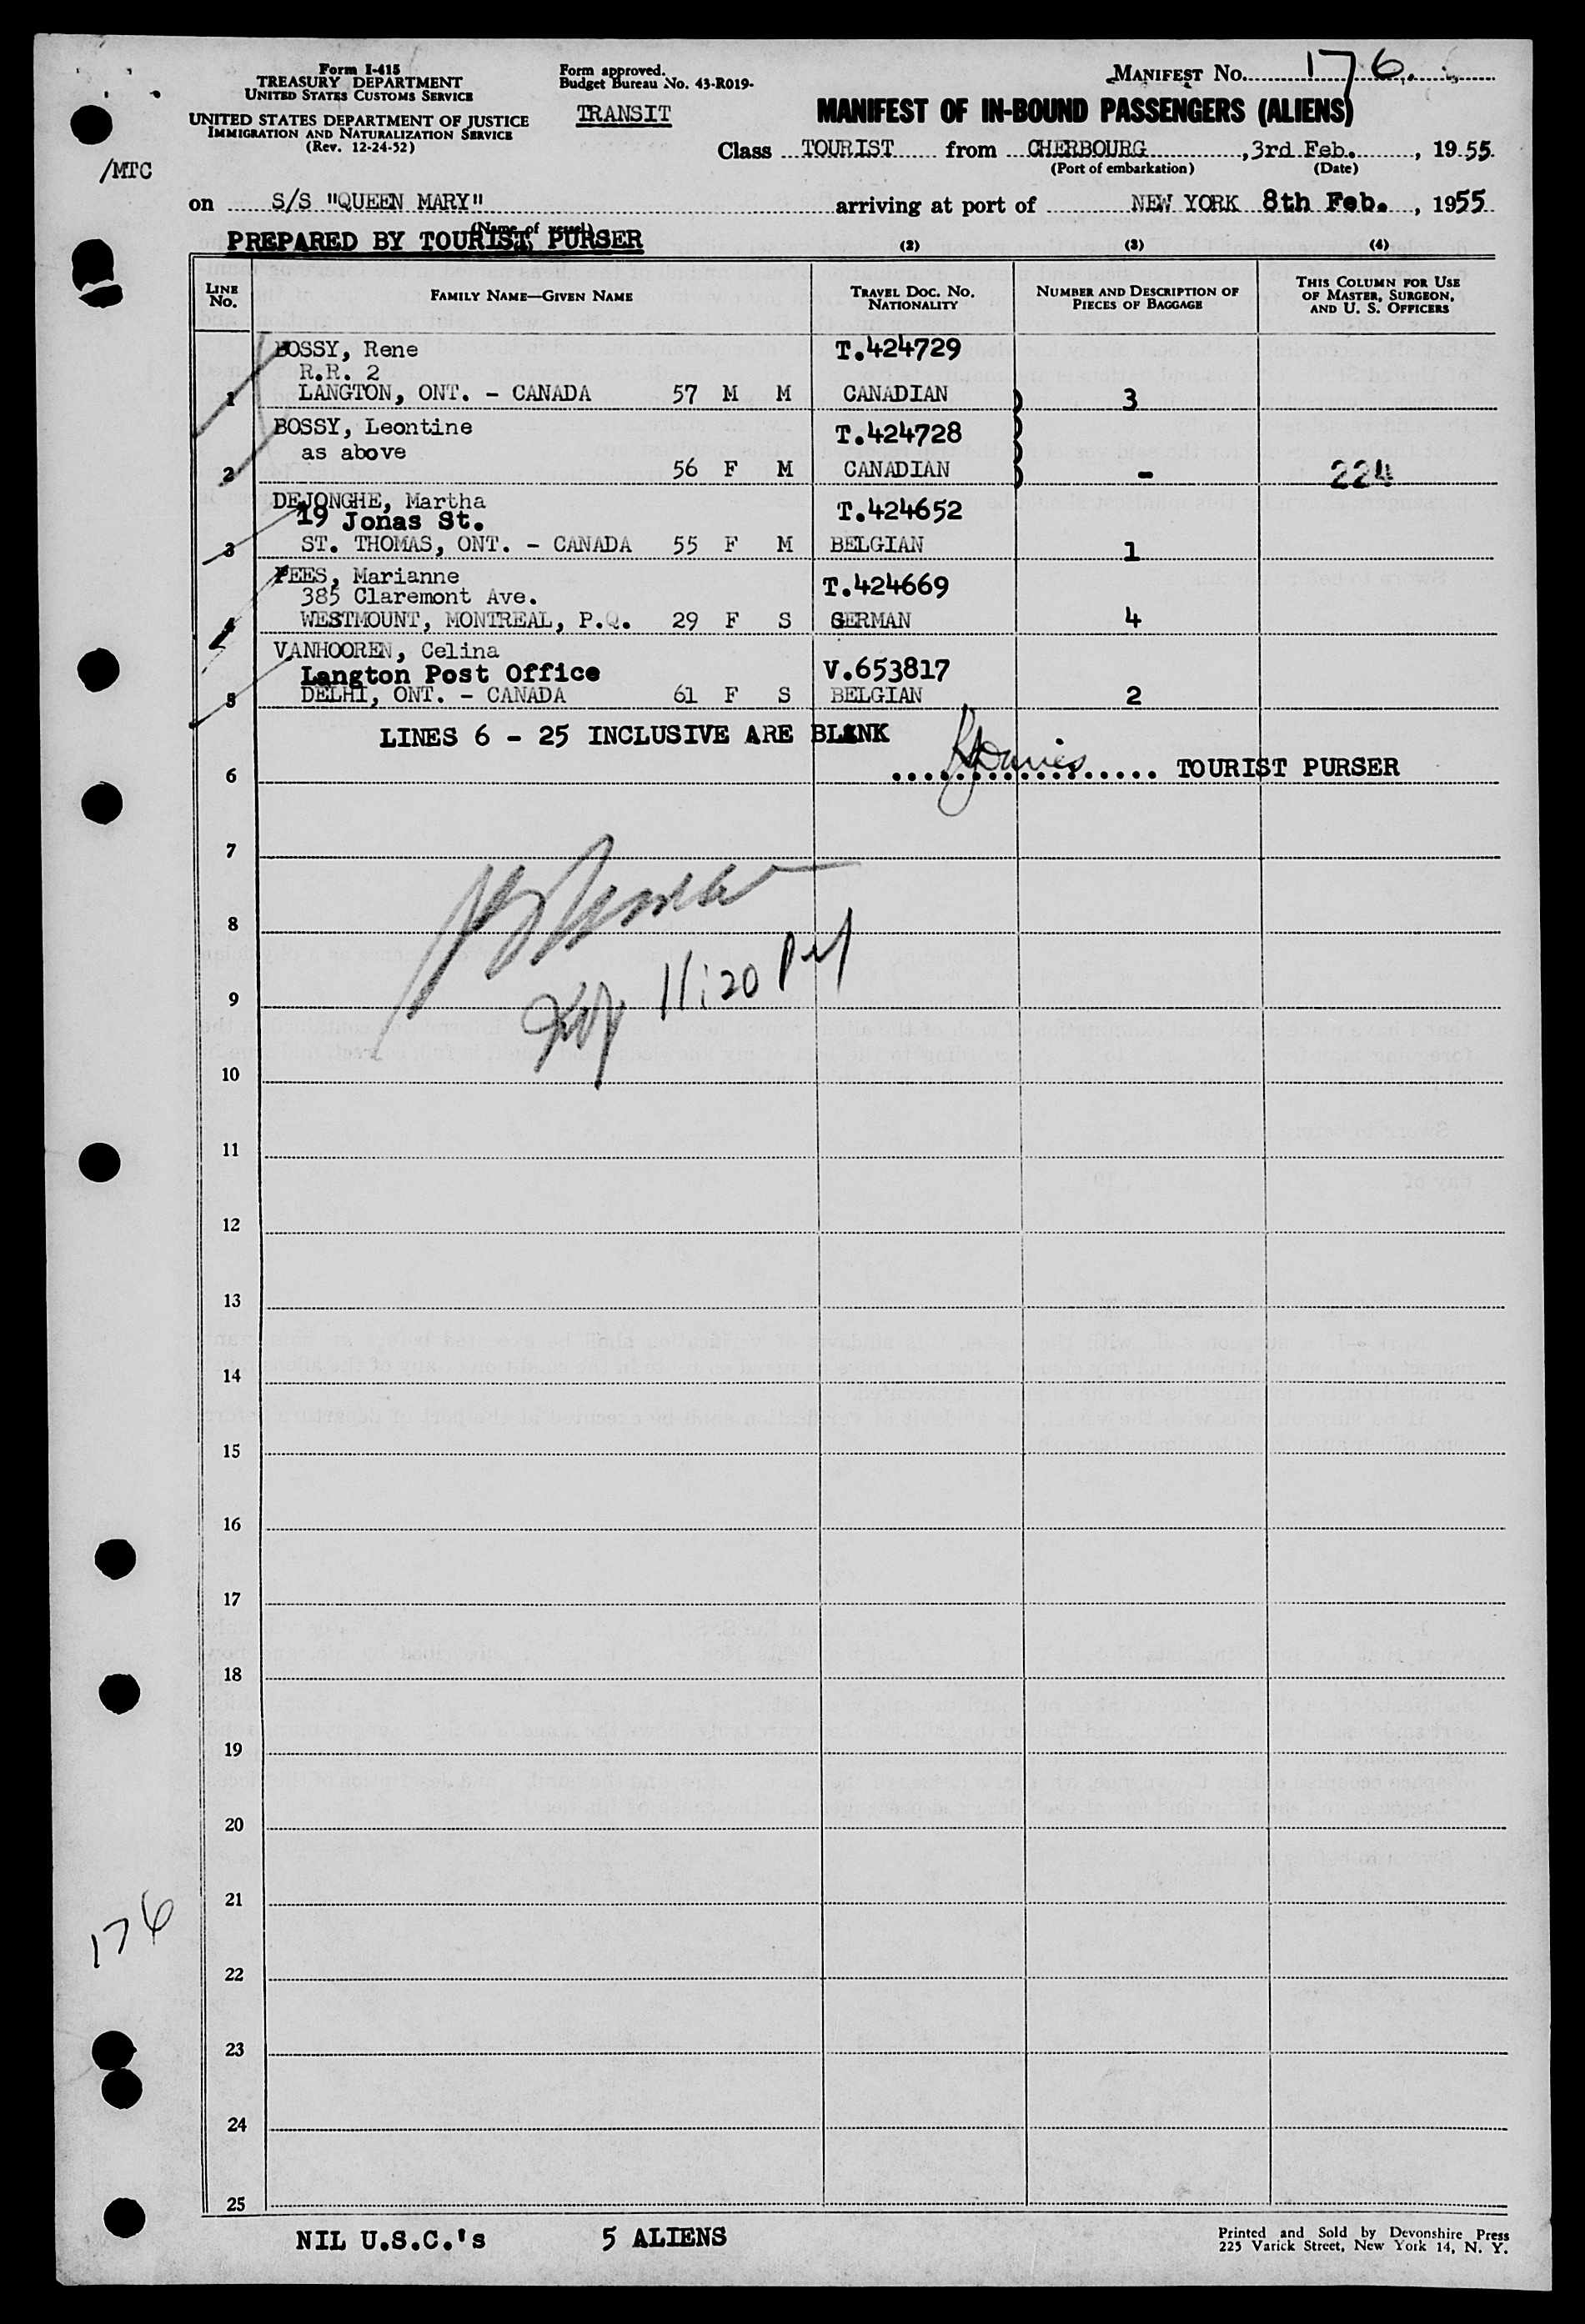 Form I-415
TREASURY DEPARTMENT
UNITED STATES CUSTOMS SERVICE
UNITED STATES DEPARTMENT OF JUSTICE
IMMIGRATION AND NATURALIZATION SERVICE
(Rev. 12-24-52)
Form approved.
Budget Bureau No. 43-R019-
TRANSIT
MANIFEST No. 176.
MANIFEST OF IN-BOUND PASSENGERS (ALIENS)
/MTC
Class TOURIST from CHERBOURG, 3rd Feb., 1955.
(Port of embarkation) (Date)
on S/S "QUEEN MARY" arriving at port of NEW YORK 8th Feb., 1955.
(Name of vessel)
PREPARED BY TOURIST PURSER
(2) (3) (4)
LINE No. FAMILY NAME—GIVEN NAME TRAVEL DOC. No. NATIONALITY NUMBER AND DESCRIPTION OF PIECES OF BAGGAGE THIS COLUMN FOR USE OF MASTER, SURGEON, AND U. S. OFFICERS
BOSSY, Rene T.424729
R.R. 2
1 LANGTON, ONT. - CANADA 57 M M CANADIAN 3
BOSSY, Leontine T.424728
as above
2 56 F M CANADIAN - 224
DEJONGHE, Martha T.424652
19 Jonas St.
3 ST. THOMAS, ONT. - CANADA 55 F M BELGIAN 1
FEES, Marianne T.424669
385 Claremont Ave.
4 WESTMOUNT, MONTREAL, P.Q. 29 F S GERMAN 4
VANHOOREN, Celina V.653817
Langton Post Office
5 DELHI, ONT. - CANADA 61 F S BELGIAN 2
LINES 6 - 25 INCLUSIVE ARE BLANK
6 TOURIST PURSER
7
8
11:20
9
10
11
12
13
14
15
16
17
18
19
20
21
176
22
23
24
25
NIL U.S.C.'s 5 ALIENS
Printed and Sold by Devonshire Press
225 Varick Street, New York 14, N. Y.